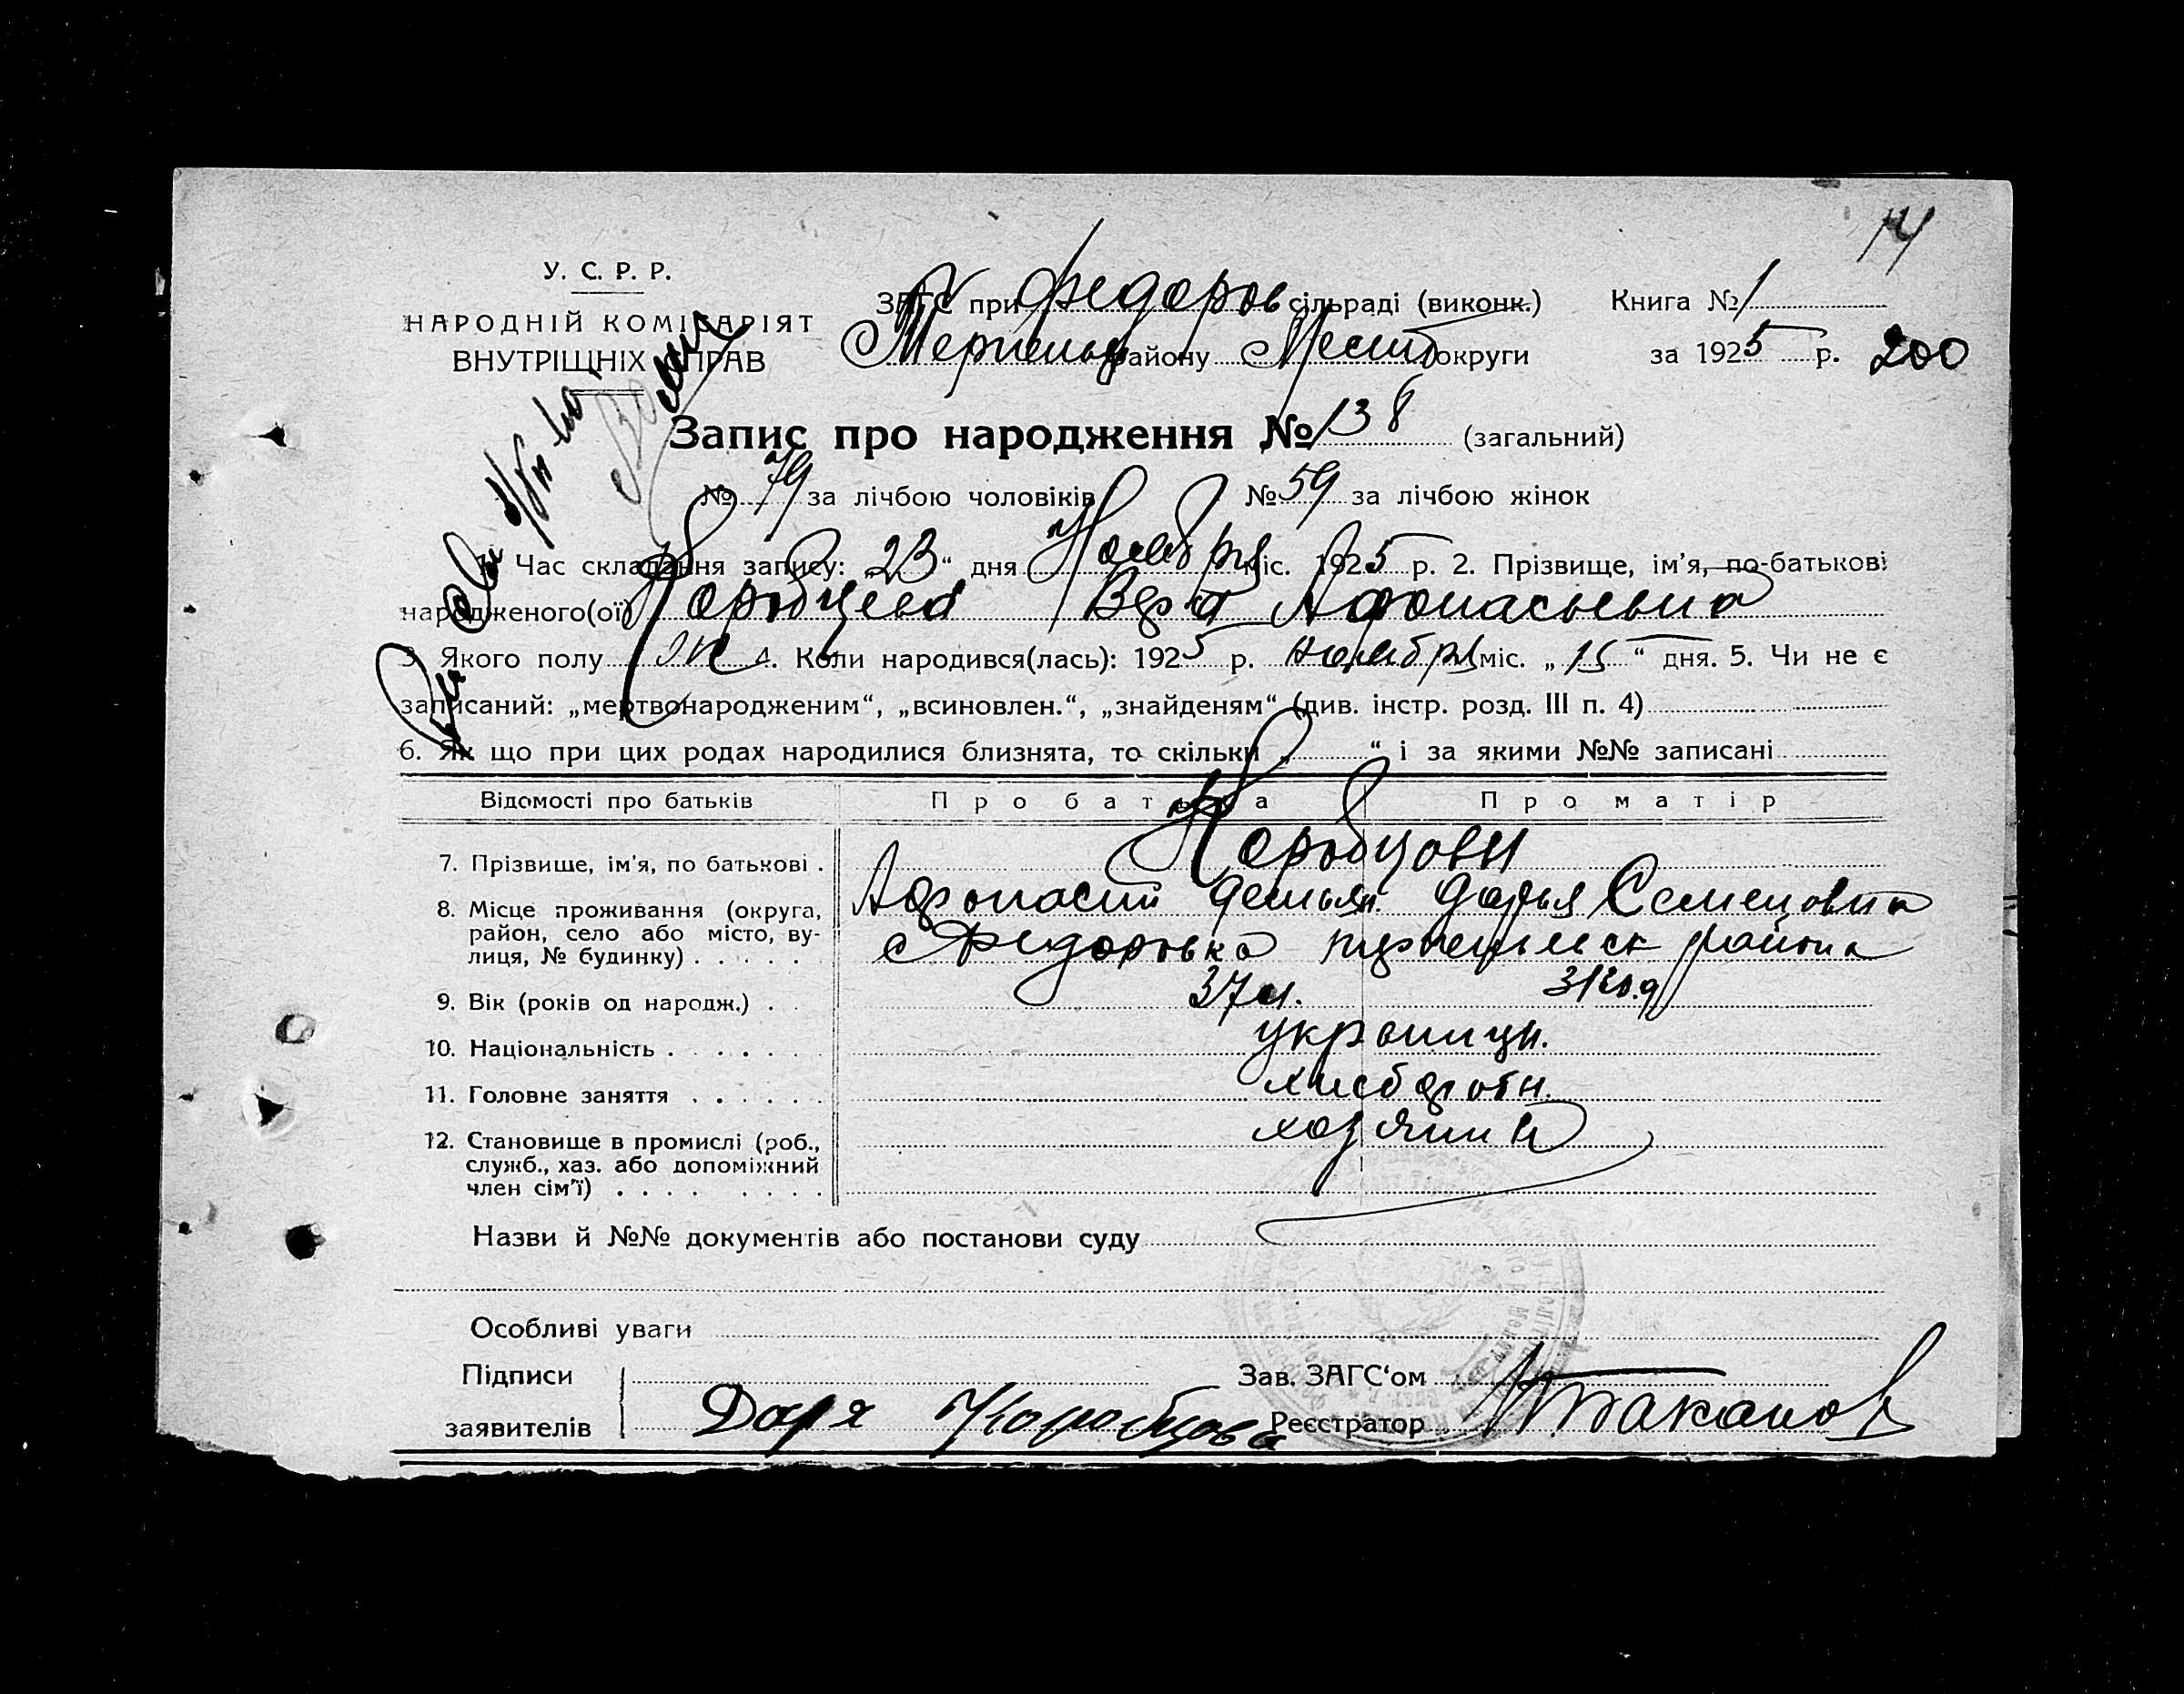 14
У. С. Р. Р.
НАРОДНІЙ КОМІСАРІЯТ
ВНУТРІЩНІХ СПРАВ
ЗАГС при Федоров сільраді (виконк.) Книга № 1
району округи за 1925 р. 200
Запис про народження № 138 (загальний)
№ 79 за лічбою чоловіків № 59 за лічбою жінок
1. Час складання запису: „23“ дня Ноября міс. 1925 р. 2. Прізвище, ім'я, по-батькові
народженого(ої) Коробцева Вера Афонасьевна
3. Якого полу ж 4. Коли народився(лась): 1925 р. ноября міс. „15“ дня. 5. Чи не є
записаний: „мертвонародженим“, „всиновлен.“, „знайденям“ (див. інстр. розд. III п. 4)
6. Як що при цих родах народилися близнята, то скільки „ “ і за якими №№ записані
Відомості про батьків Про батька Про матір
7. Прізвище, ім'я, по батькові . Коробцовы
8. Місце проживання (округа, Афонасий Демьян. Дарья Семеновна
район, село або місто, ву- с Федоровка района
лиця, № будинку) . . . . .
9. Вік (років од народж.) . . 37 л. 31
10. Національність . . . . . . украинцы.
11. Головне заняття . . . . . . хлебороты.
12. Становище в промислі (роб., хозяин
служб., хаз. або допоміжний
член сім'ї) . . . . . . . .
Назви й №№ документів або постанови суду
Особливі уваги
Підписи Зав. ЗАГС'ом
заявителів Даря Коробцова Реєстратор